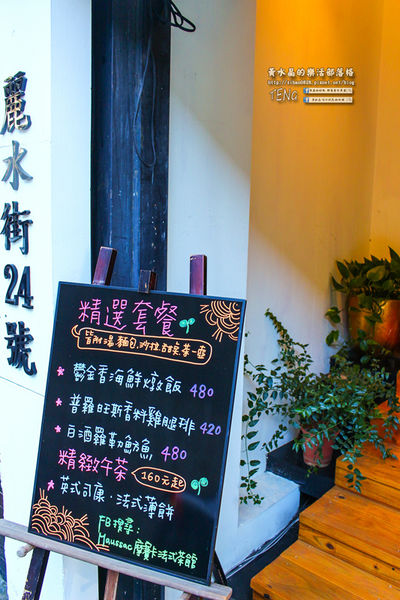 黃水晶的樂活部落格
TENG
麗水街24號
精選套餐
皆附湯.麵包.沙拉.甜點.茶一壺
鬱金香海鮮燉飯 480
普羅旺斯香料雞腿排 420
白酒羅勒魴魚 480
精緻午茶 160元起
英式司康·法式薄餅
FB搜尋:
Maussac摩賽卡法式茶館